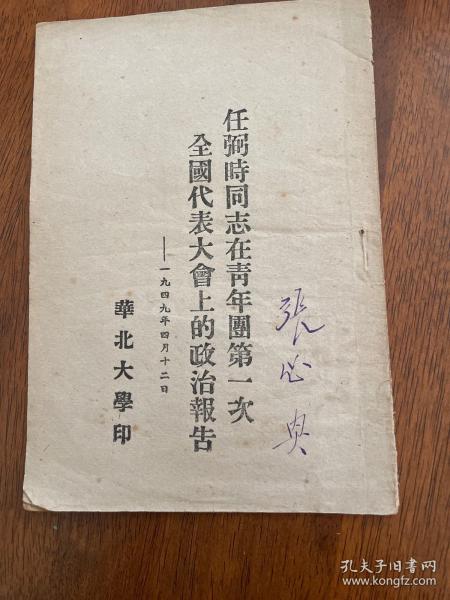 任弼時同志在靑年團第一次
全國代表大會上的政治報告
——一九四九年四月十二日
華北大學印
張必與
孔夫子旧书网
www.kongfz.com